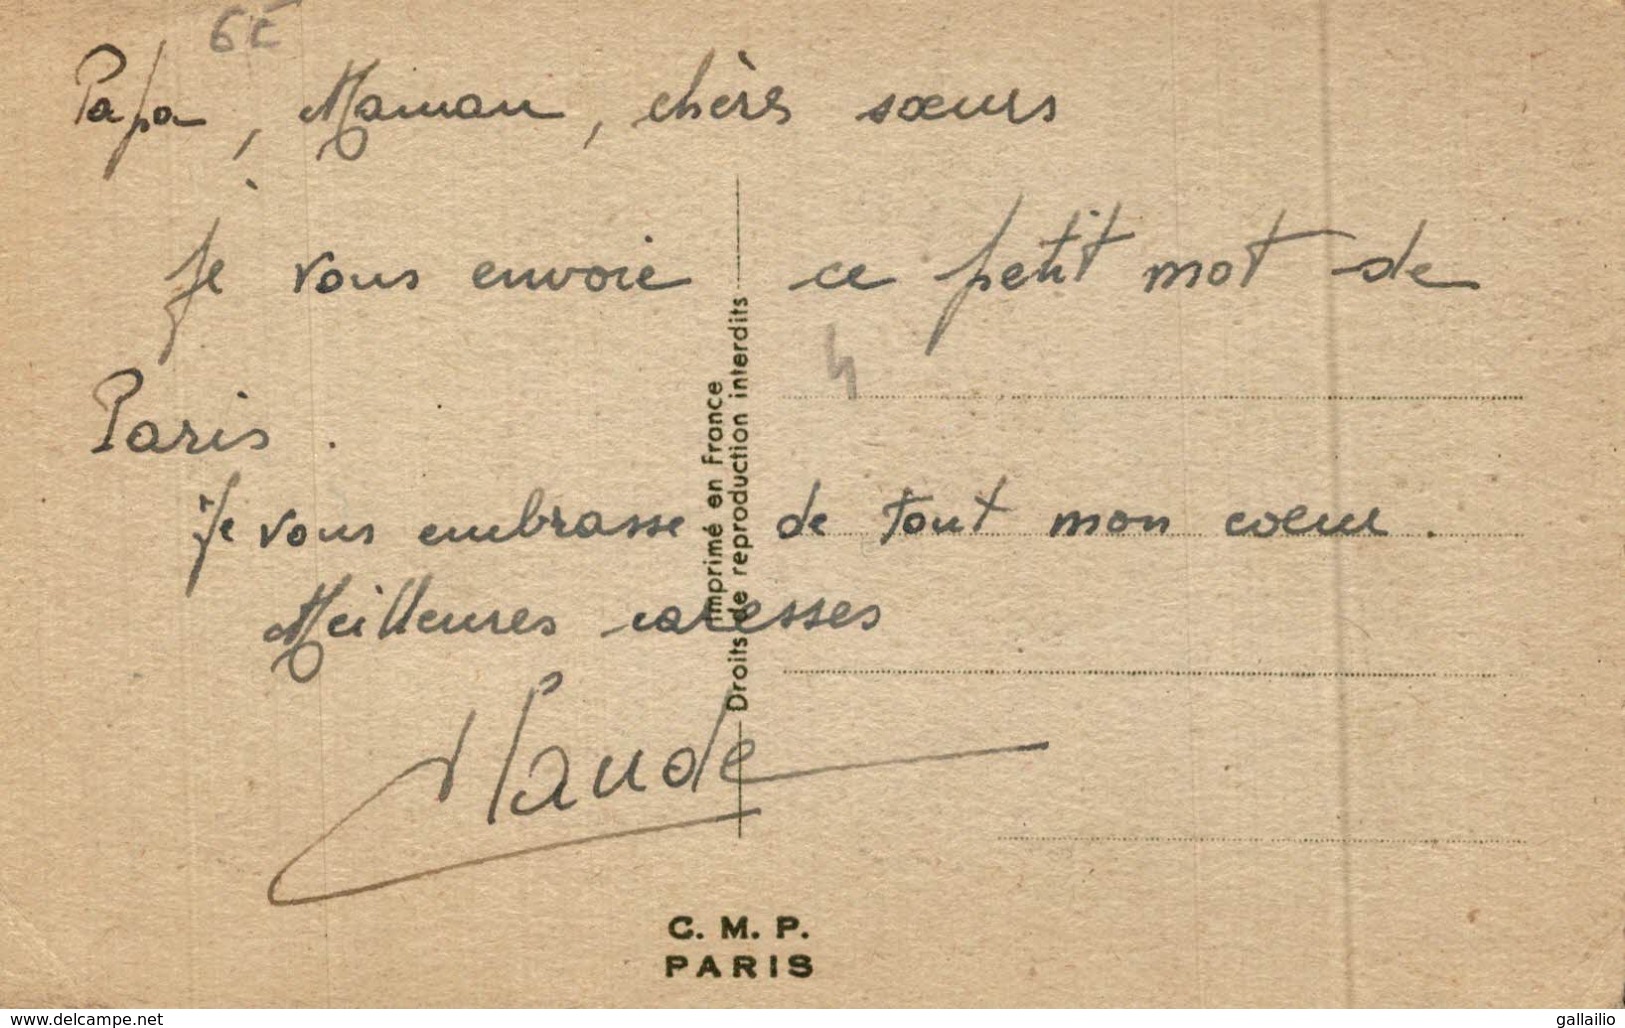 6€
Papa, Maman, chères sœurs
Je vous envoie ce petit mot de
Paris.
Je vous embrasse de tout mon coeur.
Meilleures caresses
Claude
Imprimé en France
Droits de reproduction interdits
4
C. M. P.
PARIS
www.delcampe.net
gallailio